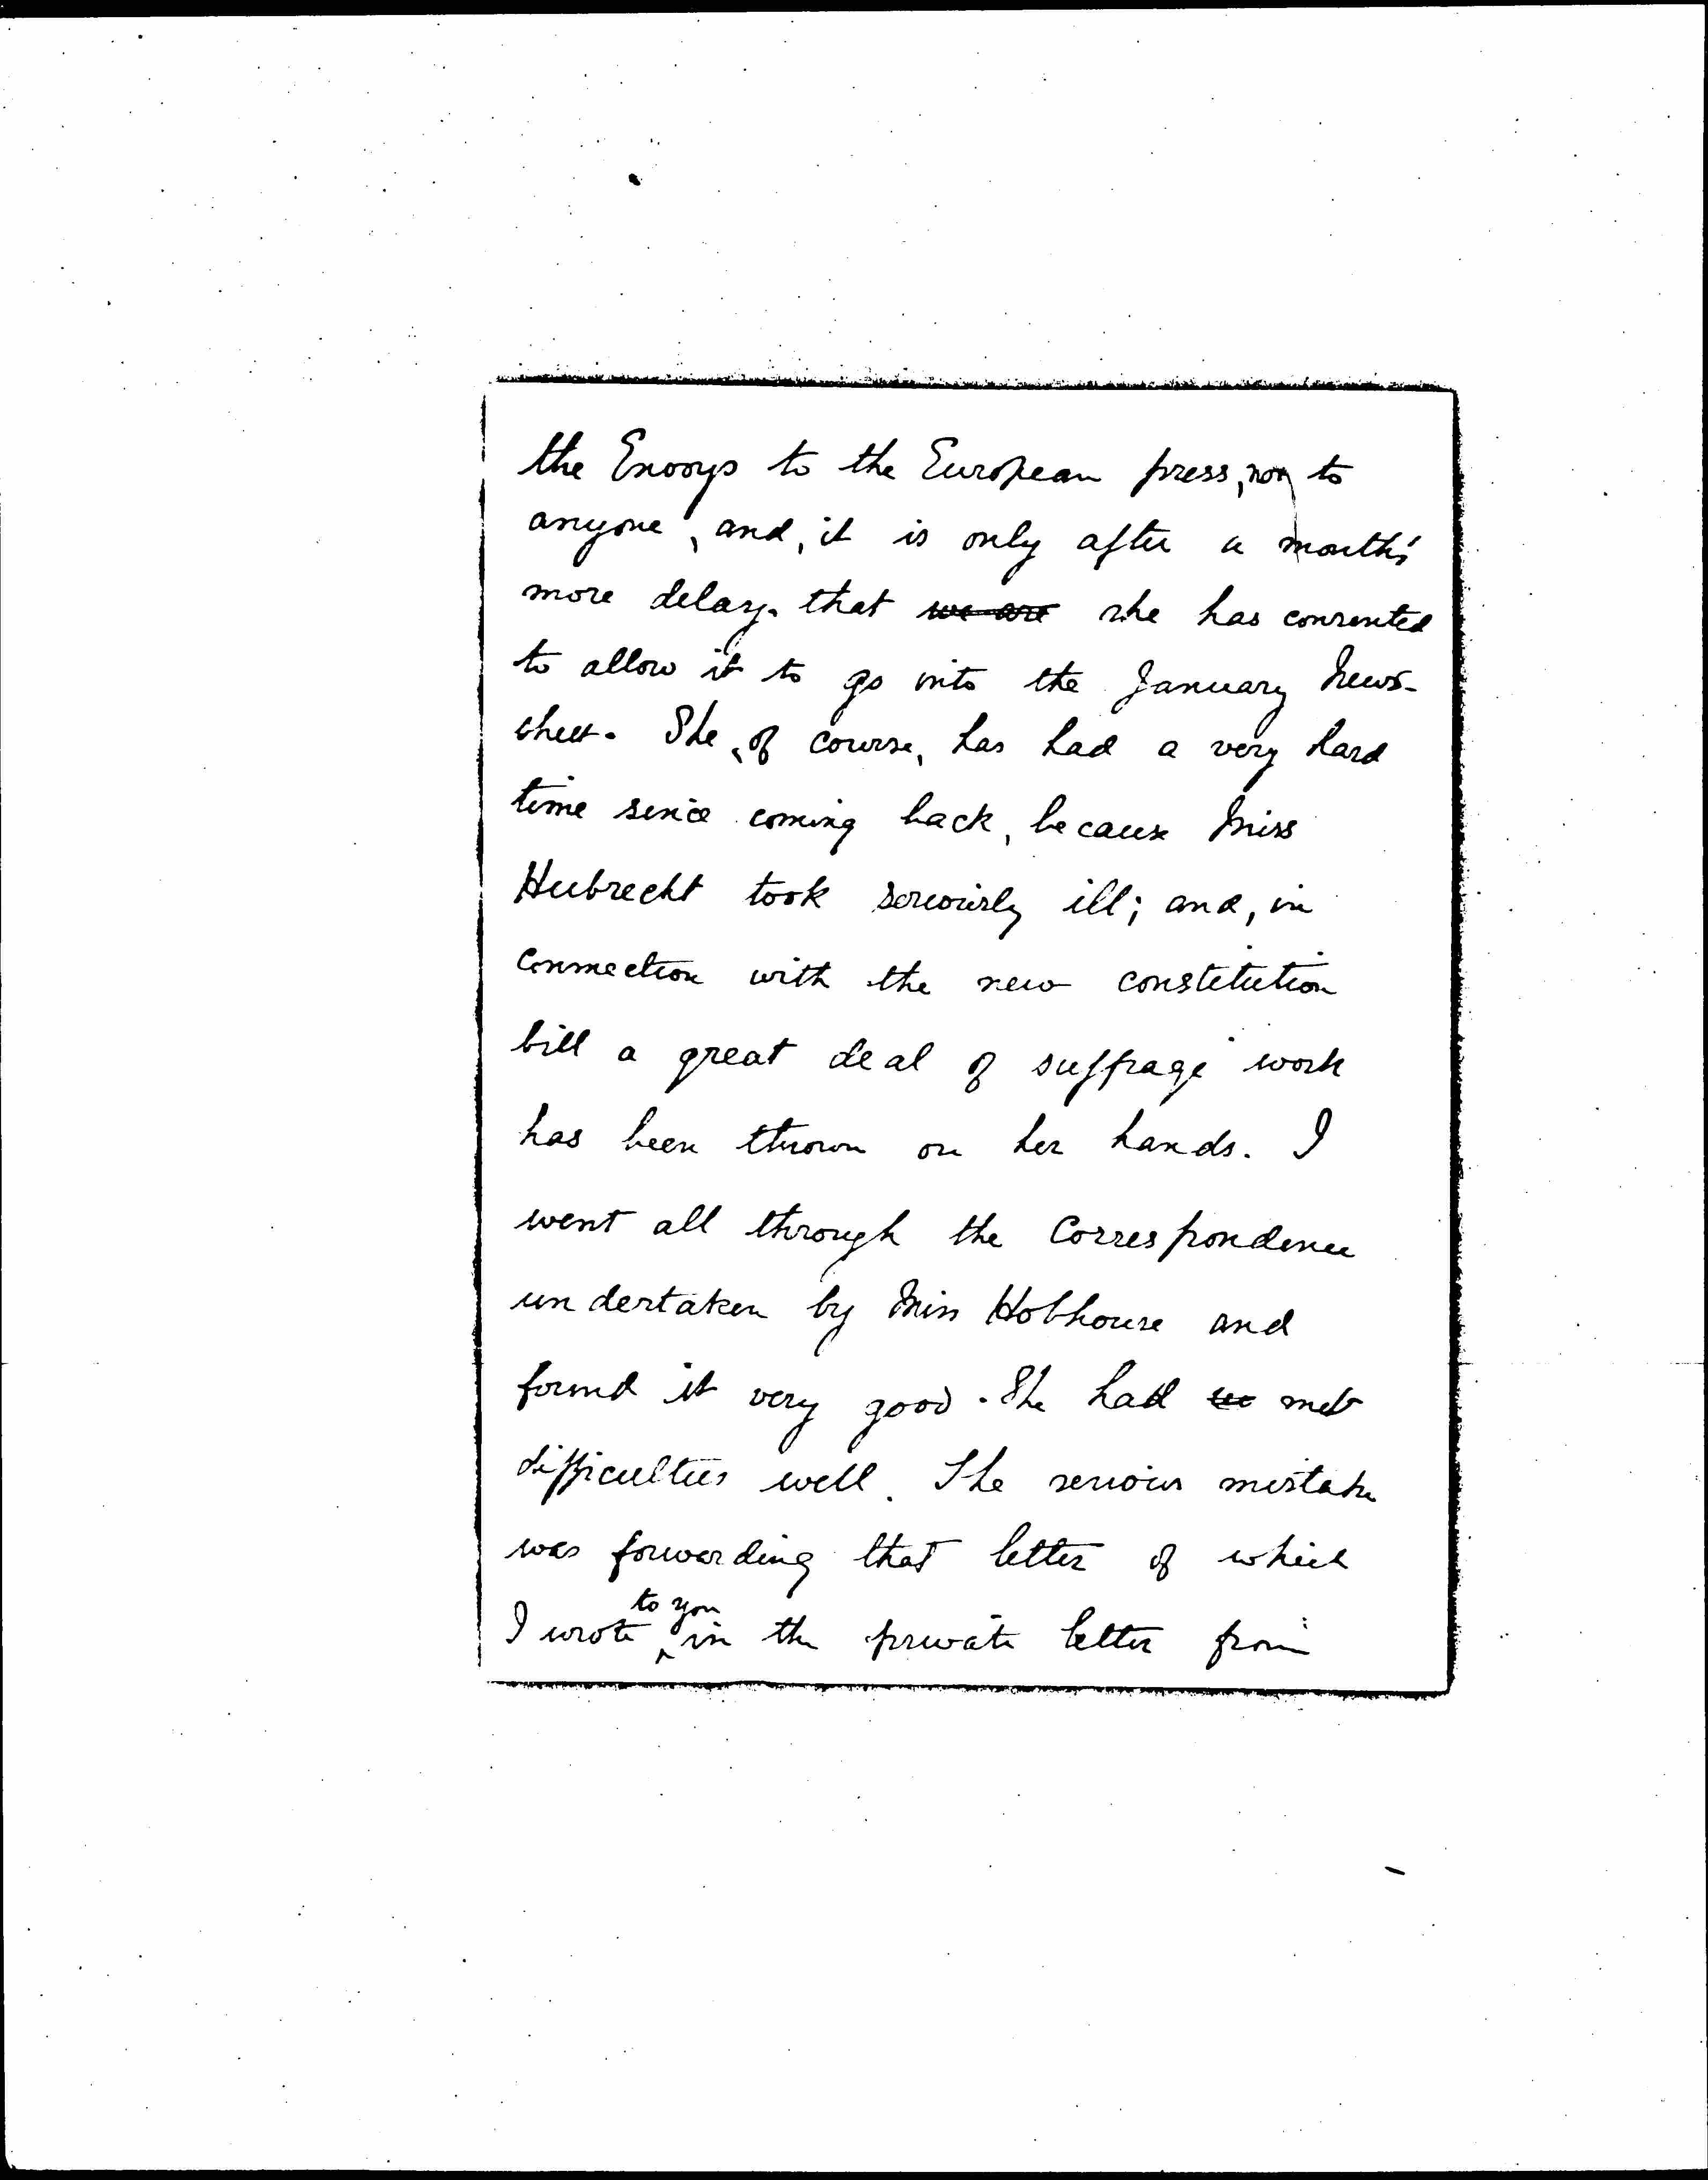 the Envoys to the European press, nor to
anyone, and, it is only after a month's
more delay. that we are she has consented
to allow it to go into the January News-
sheet. She, of course, has had a very hard
time since coming back, because Miss
Hubrecht took seriously ill; and, in
connection with the new constitution
bill a great deal of suffrage work
has been thrown on her hands. I
went all through the Correspondence
undertaken by Miss Hobhouse and
found it very good. She had met
difficulties well. The serious mistake
was forwarding that letter of which
I wrote to you in the private letter from